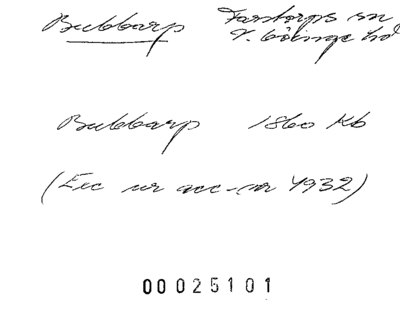 Bubbarp Farstorps sn
V. Göinge hd
Bubbarp 1860 Kb
(Exc ur acc-nr 4932)
00025101